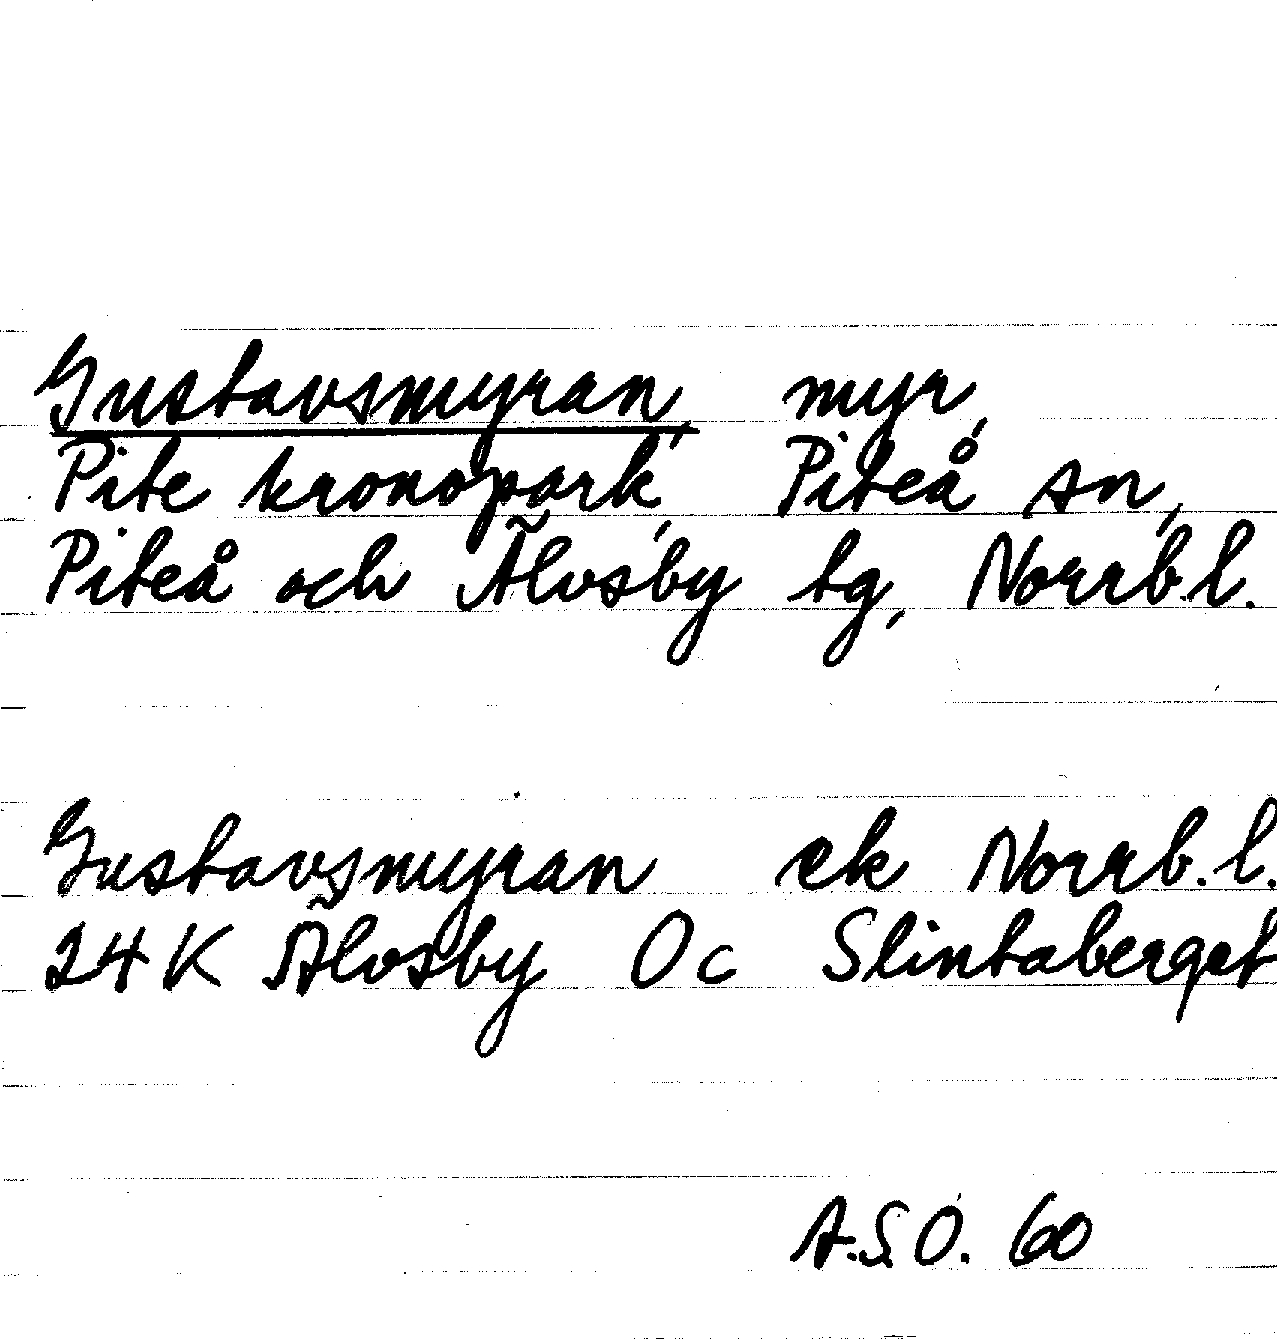 Gustavsmyran, myr,
Pite kronopark, Piteå sn,
Piteå och Älvsby tg, Norrb.l.
Gustavsmyran ek Norrb.l.
24K Älvsby Oc Slintaberget
A.S.Ö. 60